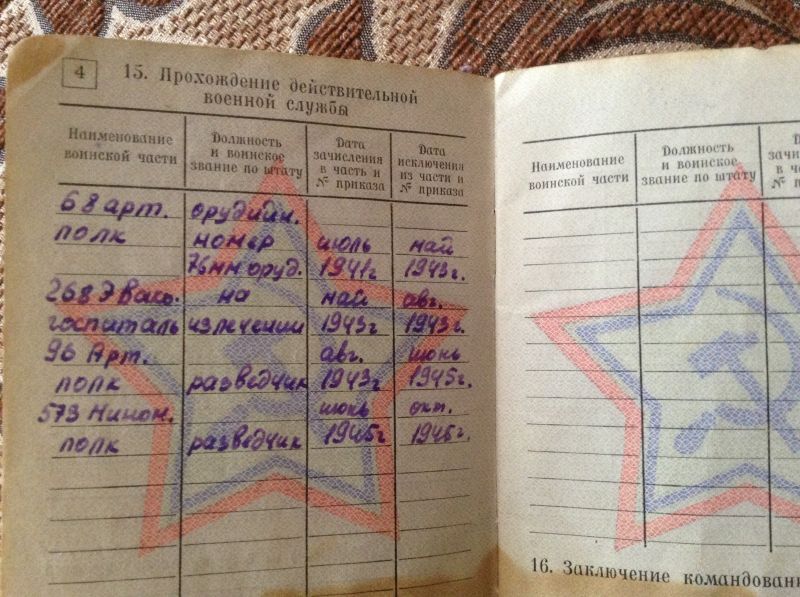 4
15. Прохождение действительной
военной службы
Наименование
воинской части
Должность
и воинское
звание по штату
Дата
зачисления
в часть и
№ приказа
Дата
исключения
из части и
№ приказа
68 арт. орудийн.
полк номер июль май
76 мм оруд. 1941г 1943г.
268 на май авг.
госпиталь излечении 1943г 1943г.
96 Арт. авг. июнь
полк разведчик 1943г 1945г.
573 июнь окт.
полк разведчик 1945г 1945г.
Наименование
воинской части
Должность
и воинское
звание по штату
16. Заключение командован